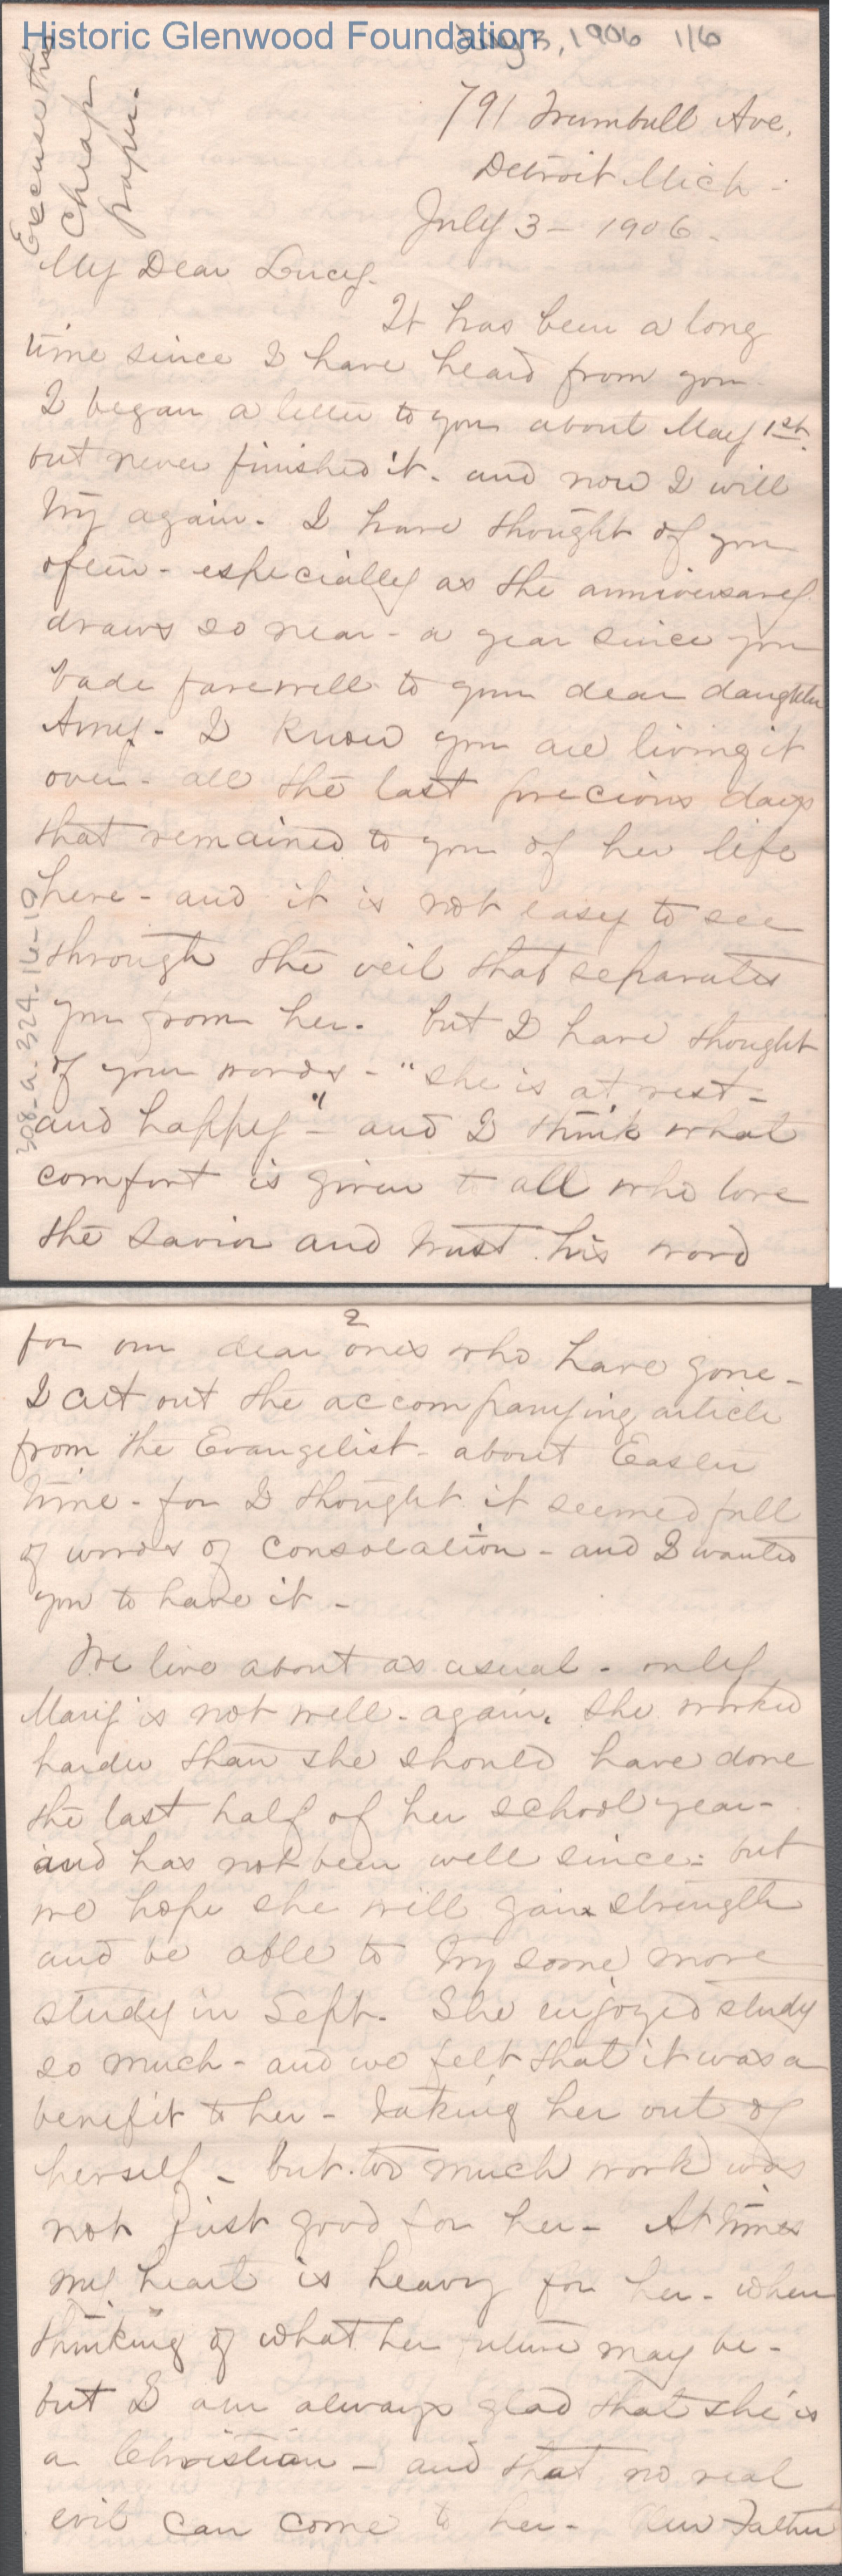 Historic Glenwood Foundation
July 3, 1906 1/6
Excuse this
cheap
paper.
791 Trumbull Ave.
Detroit Mich -
July 3 - 1906 -
My Dear Lucy -
It has been a long
time since I have heard from you
I began a letter to you about May 1st.
but never finished it - and now I will
try again - I have thought of you
often - especially as the anniversary
draws so near - a year since you
bade farewell to your dear daughter
Amy - I know you are living it
over - all the last precious days
that remained to you of her life
here - and it is not easy to see
through the veil that separates
you from her. but I have thought
of your words - "she is at rest -
and happy" - and I think what
comfort is given to all who love
the Savior and trust his word
308-a-324-16-10
2
for our dear ones who have gone -
I cut out the accompanying article
from the Evangelist - about Easter
time - for I thought it seemed full
of words of consolation - and I wanted
you to have it -
We live about as usual - only
Mary is not well - again. She worked
harder than she should have done
the last half of her school year -
and has not been well since - but
we hope she will gain strength
and be able to try some more
study in Sept. She enjoyed study
so much - and we felt that it was a
benefit to her - taking her out of
herself - but too much work was
not just good for her - At times
my heart is heavy for her - when
thinking of what her future may be -
but I am always glad that she is
a Christian - and that no real
evil can come to her - Her Father